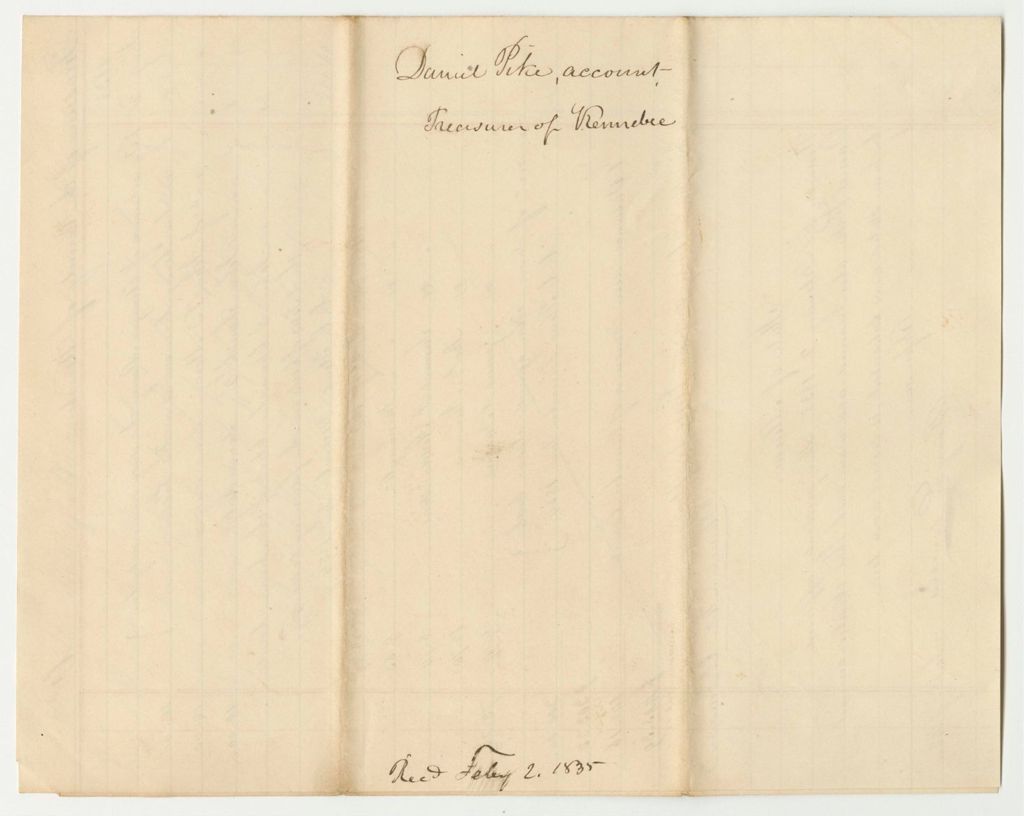 Daniel Pike, account
Treasurer of Kennebec
Recd Feby 2. 1835